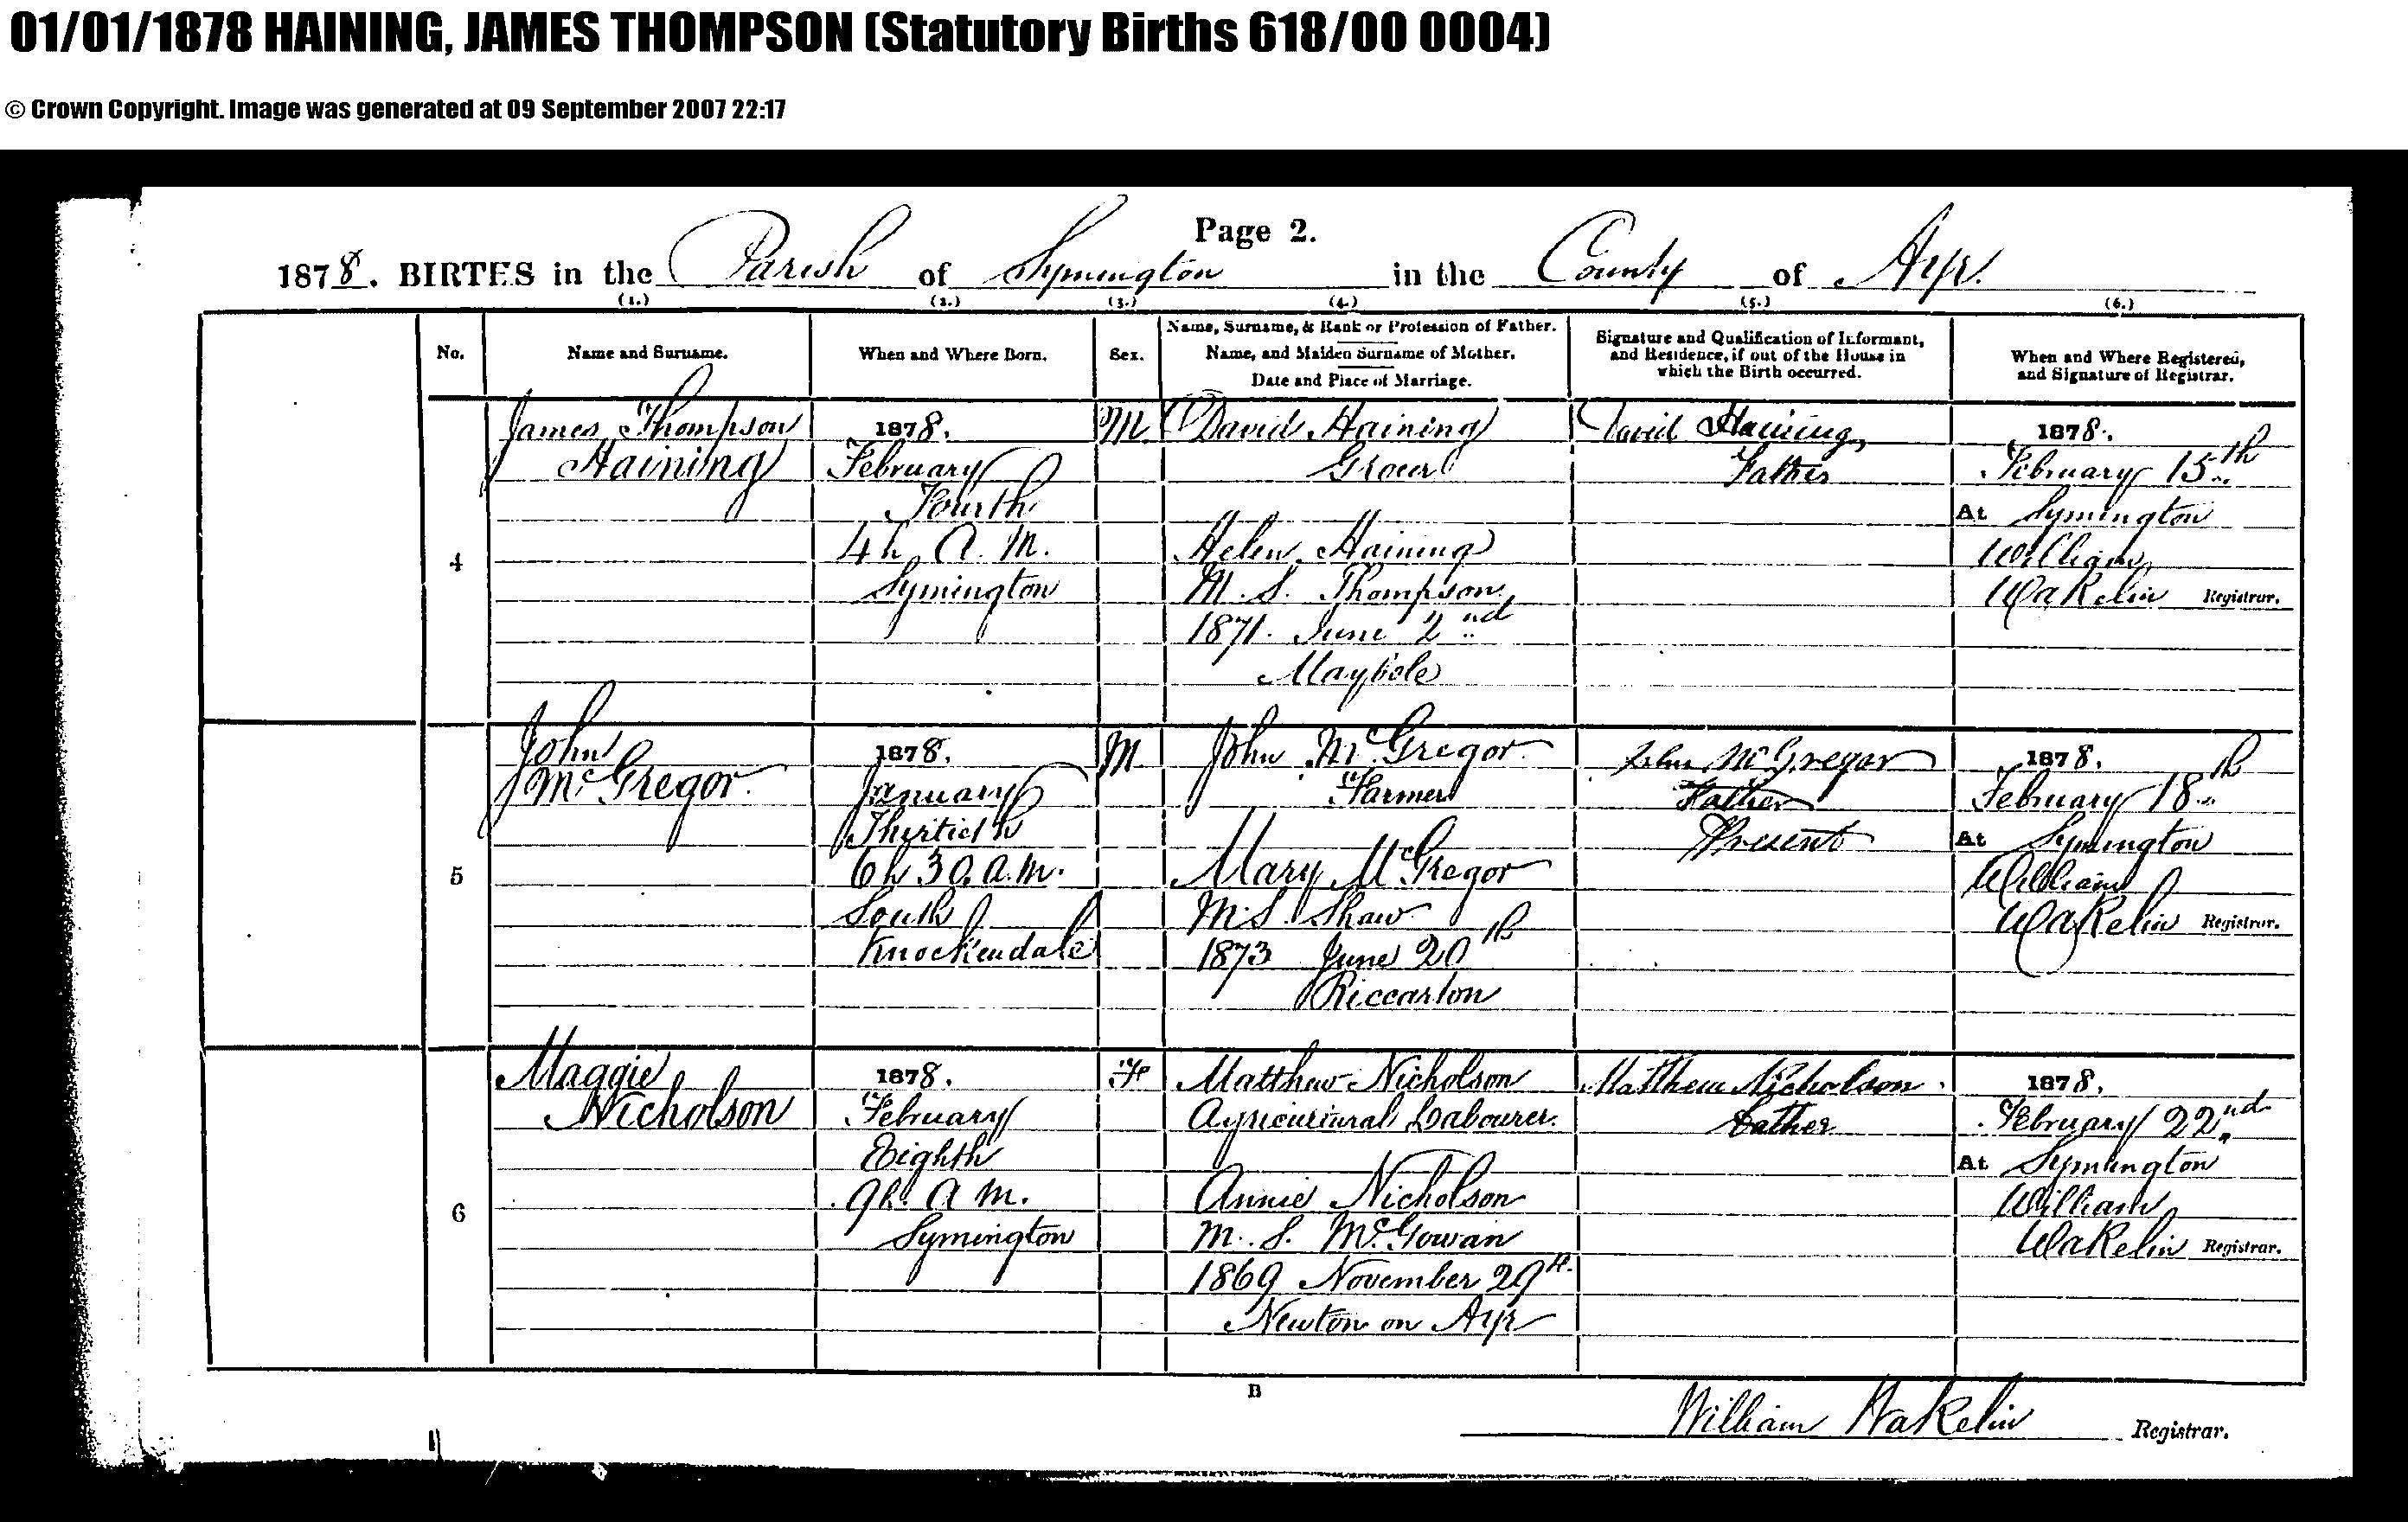 01/01/1878 HAINING, JAMES THOMPSON (Statutory Births 618/00 0004)
© Crown Copyright. Image was generated at 09 September 2007 22:17
Page 2.
1878. BIRTHS in the Parish of Symington in the County of Ayr.
(1.) (2.) (3.) (4.) (5.) (6.)
No.
Name and Surname.
When and Where Born.
Sex.
Name, Surname, & Rank or Profession of Father.
Name, and Maiden Surname of Mother.
Date and Place of Marriage.
Signature and Qualification of Informant,
and Residence, if out of the House in
which the Birth occurred.
When and Where Registered,
and Signature of Registrar.
4
James Thompson
Haining
1878.
February
Fourth
4h A.M.
Symington
M
David Haining
Grocer
Helen Haining
M.S. Thompson
1871. June 2nd
Maybole
David Haining,
Father
1878.
February 15th
At Symington
William
Wakelin Registrar.
5
John
McGregor.
1878.
January
Thirtieth
6h 30. a.m.
South
Knockendale
M
John McGregor
Farmer
Mary McGregor
M.S. Shaw
1873 June 20th
Riccarton
John McGregor
Father
Present
1878.
February 18th
At Symington
William
Wakelin Registrar.
6
Maggie
Nicholson
1878.
February
Eighth
9h. A.M.
Symington
F
Matthew Nicholson
Agricultural Labourer.
Annie Nicholson
M.S. McGowan
1869 November 29th
Newton on Ayr
Matthew Nicholson.
Father
1878.
February 22nd
At Symington
William
Wakelin Registrar.
B
William Wakelin Registrar.